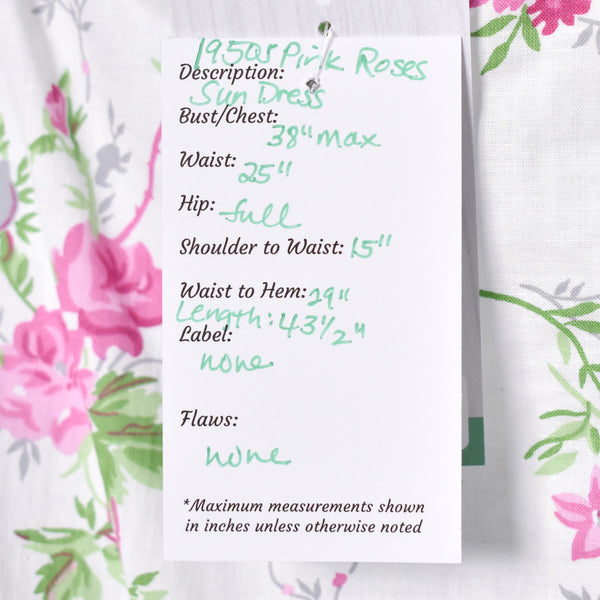 1950s Pink Roses
Description:
Sun Dress
Bust/Chest:
38" max
Waist: 25"
Hip: full
Shoulder to Waist: 15"
Waist to Hem: 29"
Length: 43 1/2"
Label:
none
Flaws:
none
*Maximum measurements shown
in inches unless otherwise noted